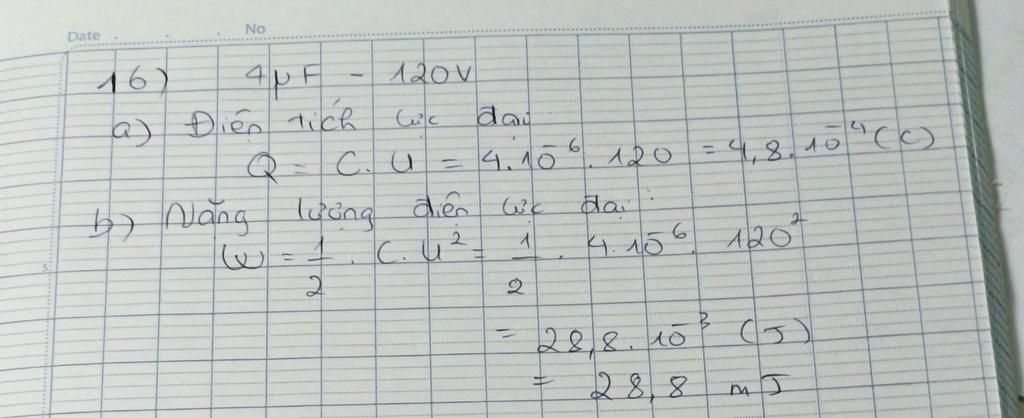 Date . . . No
16) 4µF - 120V
a) Điện tích cực đại
Q = C.U = 4.10⁻⁶.120 = 4,8.10⁻⁴ (C)
b) Năng lượng điện cực đại:
W = 1/2 . C.U² = 1/2 . 4.10⁻⁶. 120²
5
= 28,8.10⁻³ (J)
= 28,8 mJ